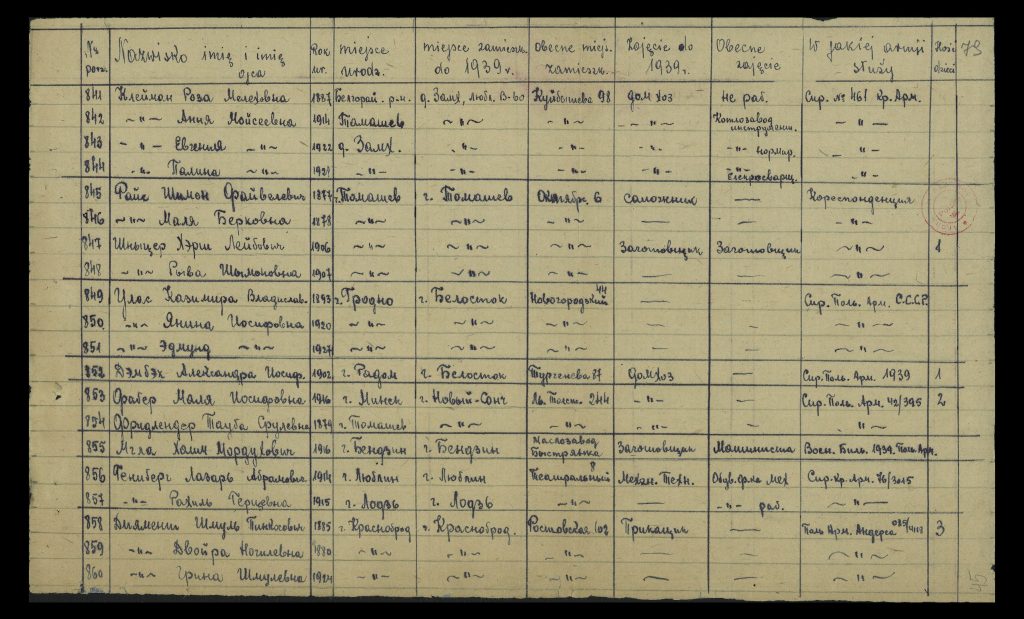 № porz. Nazwisko imię i imię ojca Rok ur. miejsce urodz. miejsce zamieszk. do 1939 r. obecne miejs. zamieszk. Zajęcie do 1939 r. Obecne zajęcie W jakiej armii służy Ilość dzieci 73
841 Клейман Роза Мелеховна 1887 Белгорай. р-н. д. Замх, Любл. В-во Куйбышева 98 дом хоз не раб. Спр. № 461 Кр. Арм.
842 -"- Анна Мойсеевна 1914 Томашев ~"~ -"- -"- Котлозавод инструмент. -"-
843 -"- Евгения -"- 1922 д. Замх. -"- -"- -"- -"- нормир. -"-
844 -"- Полина -"- -"- -"- -"- -"- Електросварщ. -"-
845 Файс Шимон Файвелевич 1877 г. Томашев г. Томашев Октябрс. 6 сапожник — Кореспонденция
846 ~"~ Маля Берковна 1878 ~"~ ~"~ ~"~ — — -"-
847 Шныцер Хэрш Лейбович 1906 ~"~ ~"~ ~"~ Заготовщик Заготовщик ~"~ 1
848 -"- Рыва Шымоновна 1907 ~"~ ~"~ ~"~ — — ~"~
849 Улас Казимира Владислав. 1893 г. Гродно г. Белосток Новогородський 44 — Спр. Поль. Арм. С.С.С.Р.
850 -"- Янина Иосифовна 1920 ~"~ ~"~ ~"~ — — ~"~
851 ~"~ Эдмунд ~"~ 1927 ~"~ ~"~ ~"~ — — ~"~
852 Дэмбэк Александра Иосиф. 1902 г. Радом г. Белосток Тургенева 77 домхоз — Спр. Поль. Арм. 1939 1
853 Фабер Маля Иосифовна 1916 г. Минск г. Новый-Сонч Ль. Толст. 244 -"- — Спр. Поль. Арм. 42/395 2
854 Фридлендер Тауба Срулевна 1874 г. Томашев ~"~ -"- -"- — ~"~
855 Мгла Хаим Мордухович 1916 г. Бендзин г. Бендзин Маслозавод Быстрянка Заготовщик Машиниста Воен. Биль. 1939. Поль. Арм.
856 Генберг Лазарь Абрамович 1914 г. Люблин г. Люблин Театральный 8 Механ. Техн. Обув. ф-ка Мех Спр. Кр. Арм. 76/3015
857 -"- Рахиль Герцевна 1915 г. Лодзь г. Лодзь ~"~ — -"- раб. -"-
858 Диамент Шмуль Пинкосович 1885 г. Красноброд г. Красноброд. Ростовская 102 Прикащик — Поль Арм. Андерса 3
859 -"- Двойра 1880 -"- -"- -"- — — ~"~
860 ~"~ Грина Шмулевна 1924 -"- ~"~ ~"~ — — ~"~